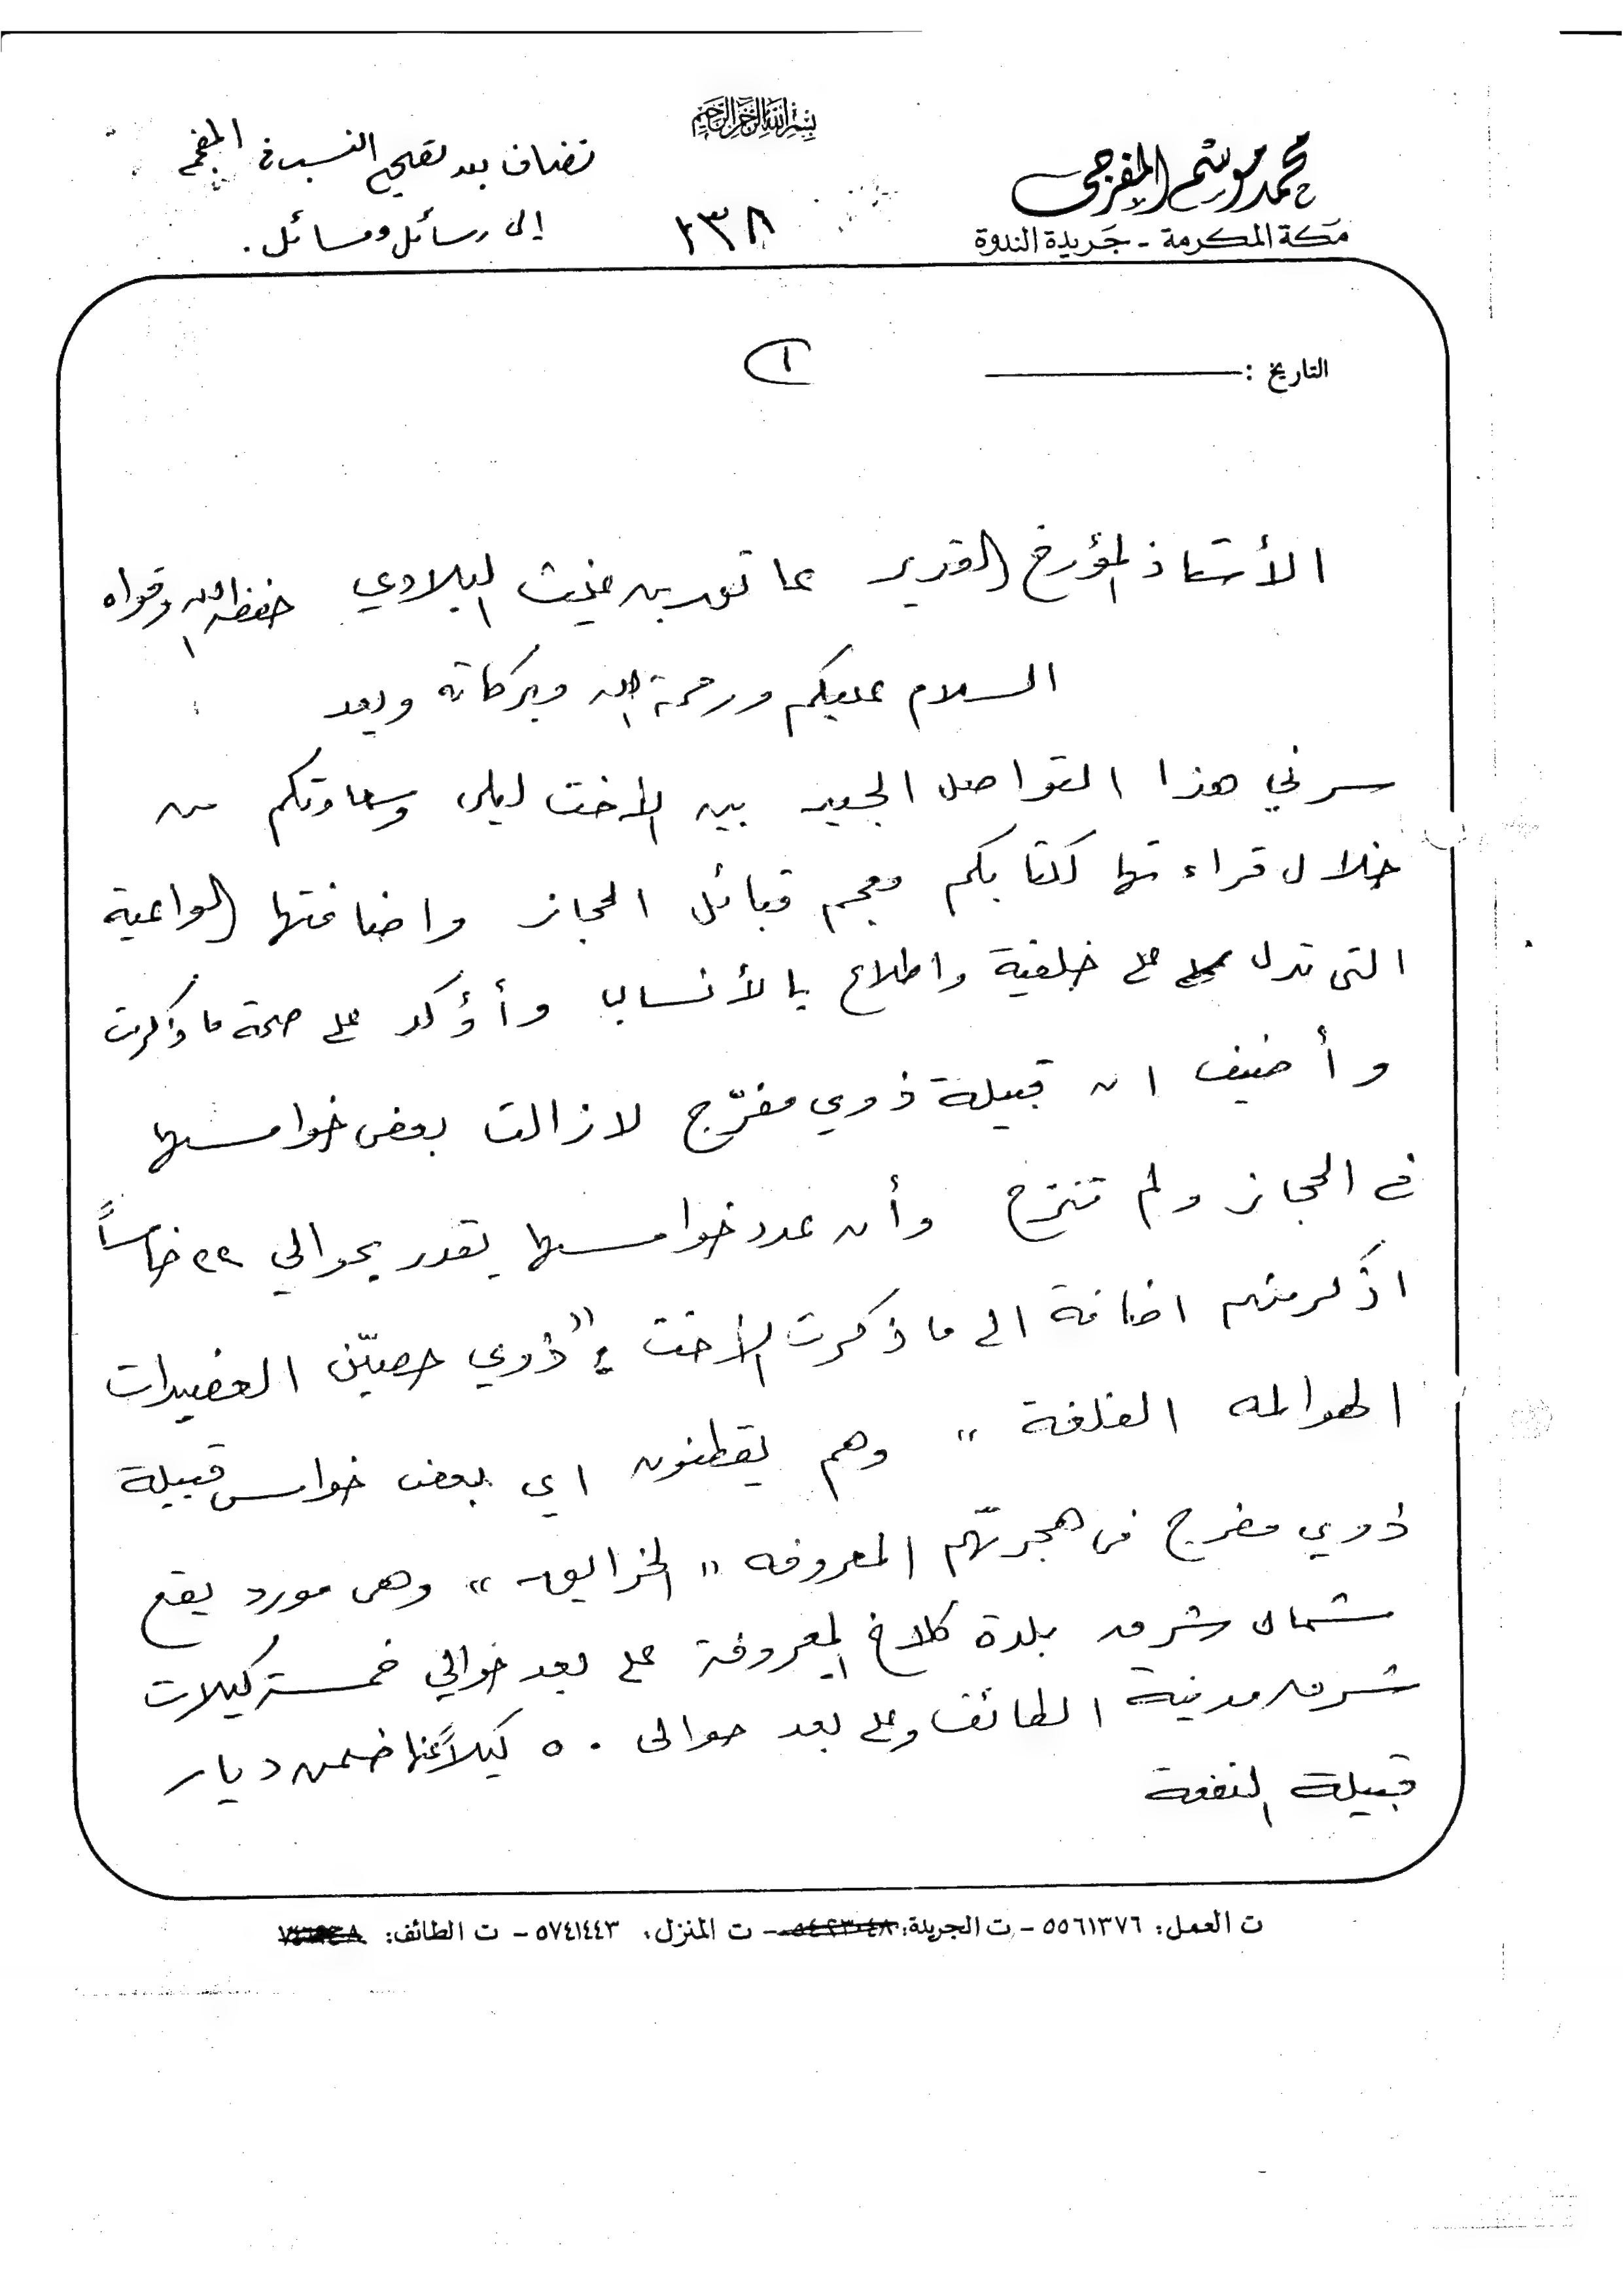 بسم الله الرحمن الرحيم
محمد موسم المفرجي
مكة المكرمة - جريدة الندوة
تضاف بعد تصحيح النسب في المعجم
إلى رسائل ومسائل .
٢٣٨
التاريخ :
١
الأستاذ المؤرخ القدير عاتق بن غيث البلادي حفظه الله وقواه
السلام عليكم ورحمة الله وبركاته وبعد
سرني هذا التواصل الجيد بين الاخت ليلى وسعادتكم من
خلال قراءتها لكتابكم معجم قبائل الحجاز واضافتها الواعية
التى تدل على خلفية واطلاع بالأنساب وأؤكد على صحة ما ذكرت
وأضيف ان قبيلة ذوي مفرّج لازالت بعض خوامسها
في الحجاز ولم تنزح وأن عدد خوامسها يقدر بحوالي ٢٢ خامساً
اذكر منهم اضافة الى ما ذكرت الاخت "ذوي حصيّن العضيدات
الهوامله الغلفة" وهم يقطنون اي بعض خوامس قبيلة
ذوي مفرج في هجرتهم المعروفه "الخرايق" وهى مورد يقع
شمال شرق بلدة كلاخ المعروفة على بعد حوالي خمسة كيلات
شرق مدينة الطائف وعلى بعد حوالى ٥٠ كيلاً عنها ضمن ديار
قبيلة النفعة
ت العمل: ٥٥٦١٣٧٦ - ت الجريدة: - ت المنزل: ٥٧٤١٤٤٣ - ت الطائف: